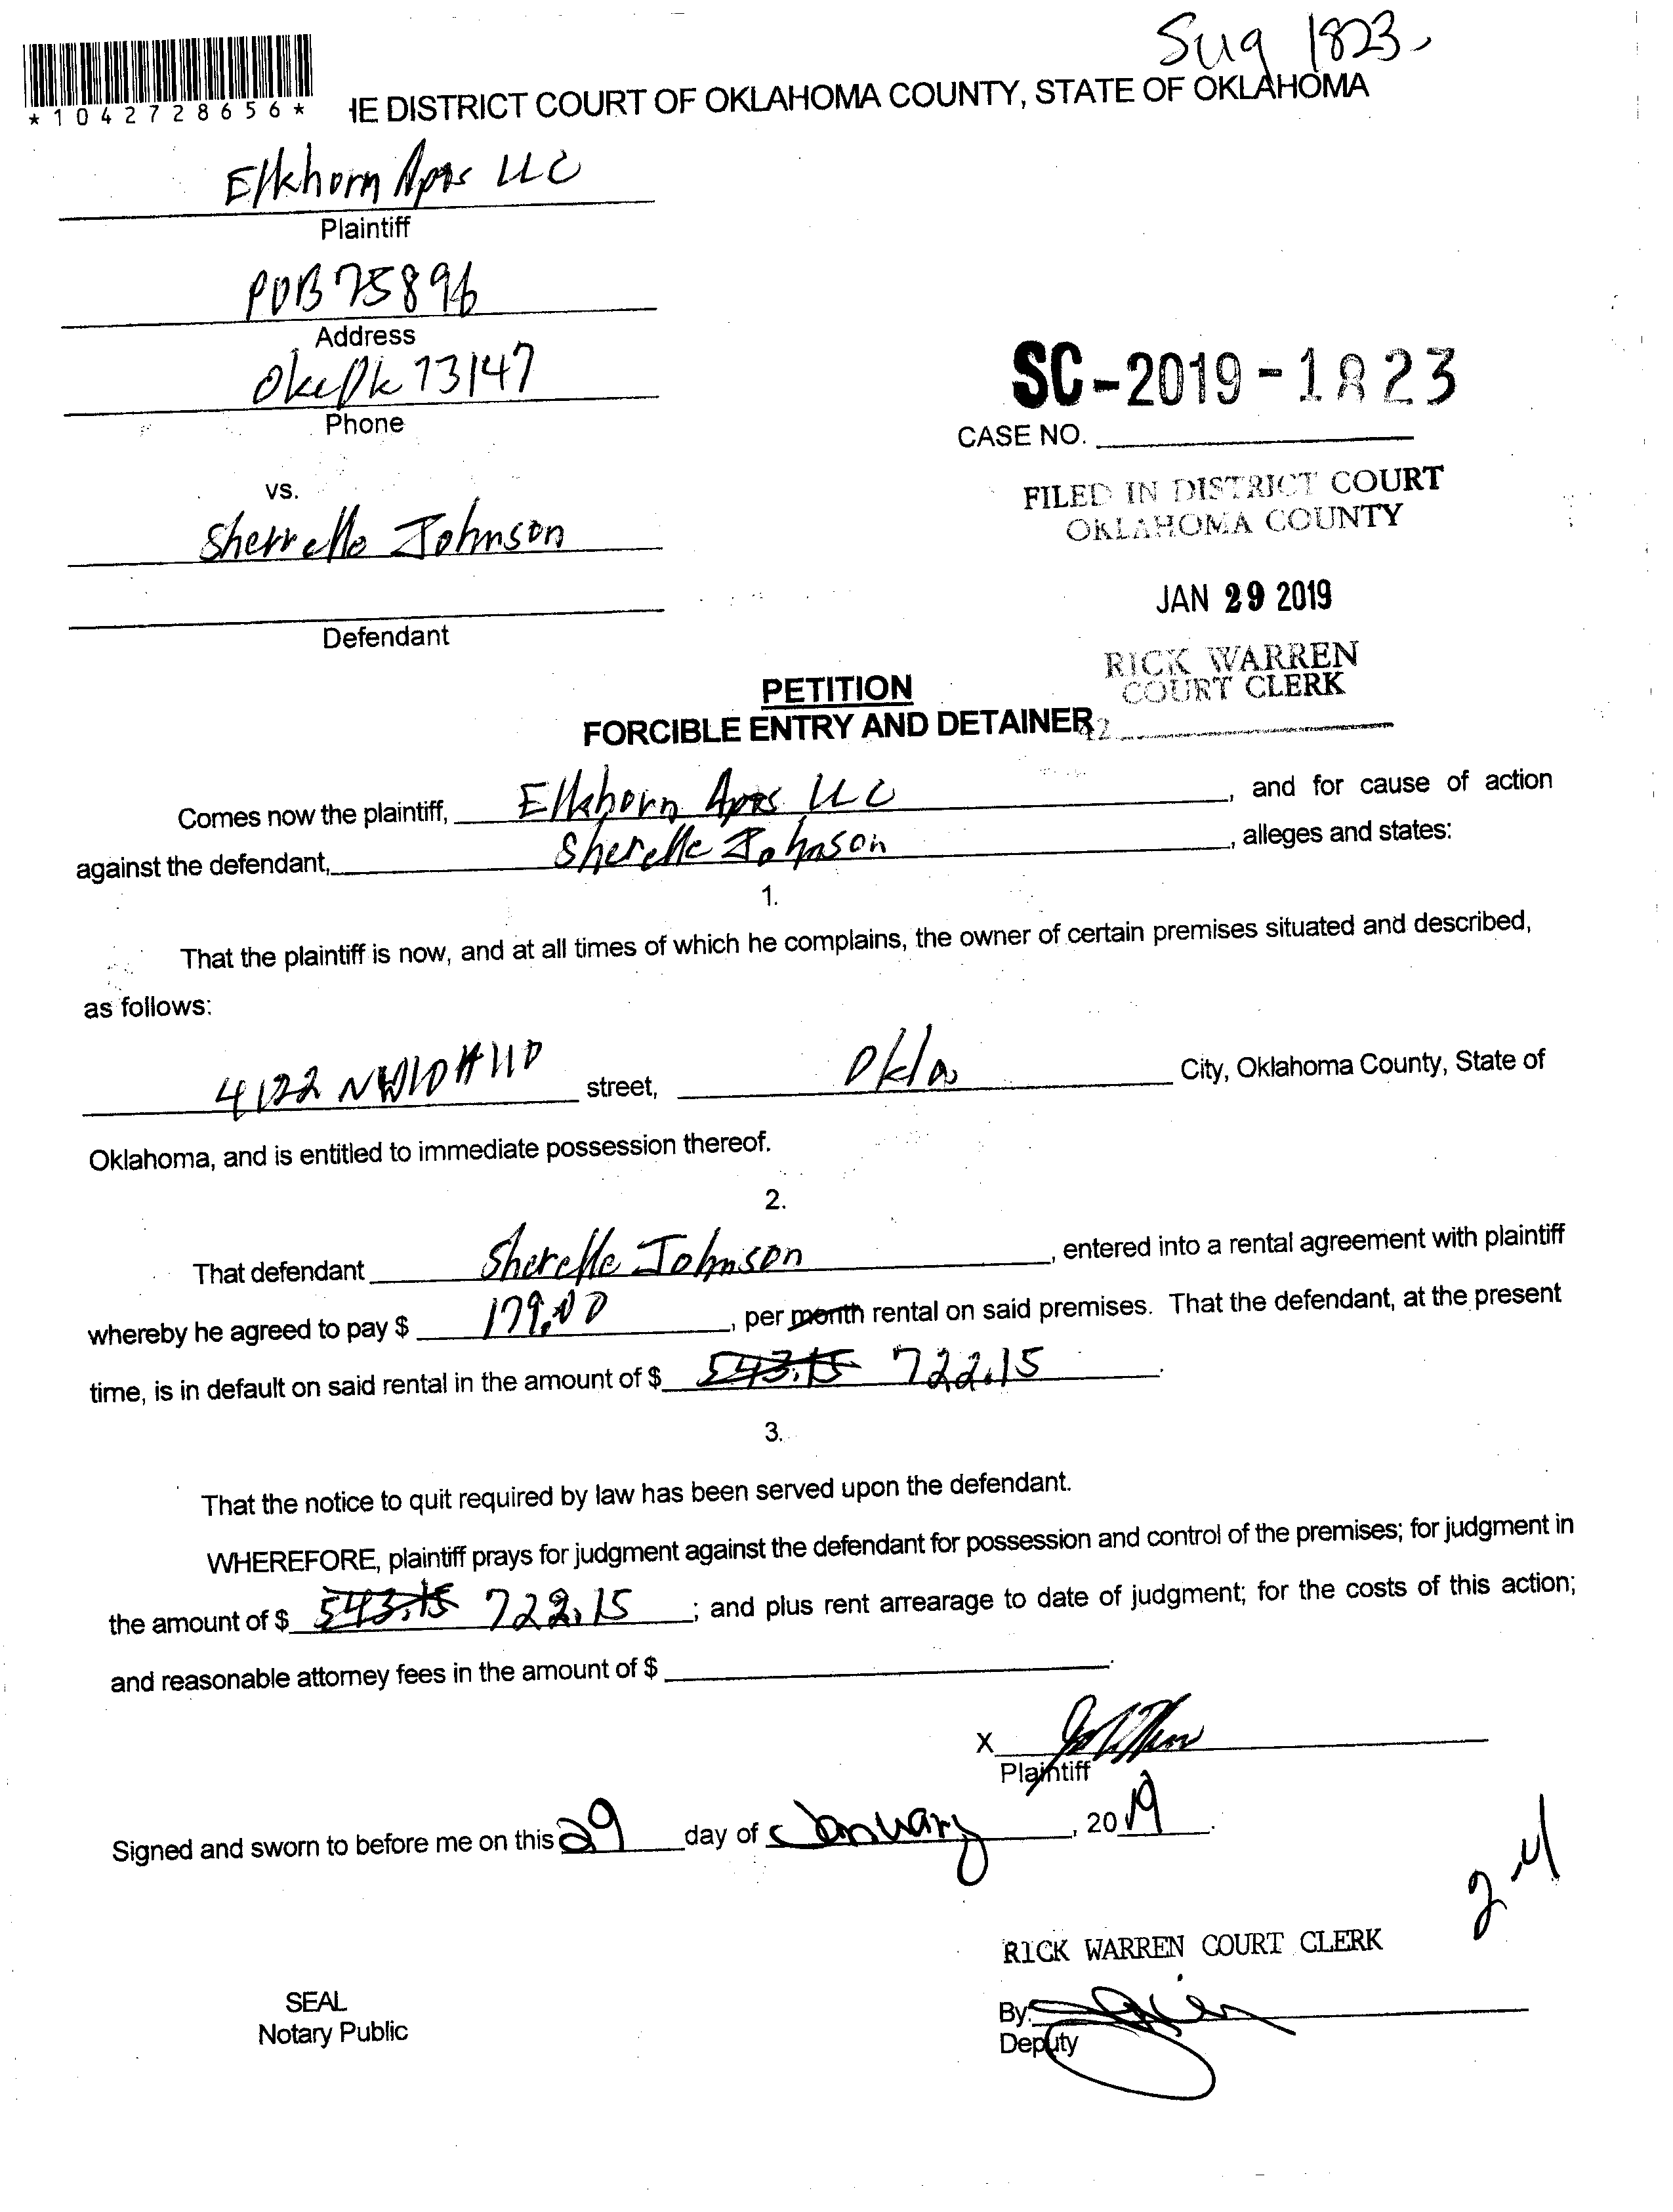 Sug 1823
*1042728656*
HE DISTRICT COURT OF OKLAHOMA COUNTY, STATE OF OKLAHOMA
Elkhorn Apts LLC
Plaintiff
POB 75896
Address
Okc Ok 73147
Phone
SC-2019-1823
CASE NO.
vs.
FILED IN DISTRICT COURT
OKLAHOMA COUNTY
Sherrelle Johnson
JAN 29 2019
Defendant
RICK WARREN
COURT CLERK
PETITION
FORCIBLE ENTRY AND DETAINER
42
Comes now the plaintiff, Elkhorn Apts LLC, and for cause of action
against the defendant, Sherelle Johnson, alleges and states:
1.
That the plaintiff is now, and at all times of which he complains, the owner of certain premises situated and described,
as follows:
4122 NW10 #110 street, Okla City, Oklahoma County, State of
Oklahoma, and is entitled to immediate possession thereof.
2.
That defendant Sherelle Johnson, entered into a rental agreement with plaintiff
whereby he agreed to pay $ 179.00, per month rental on said premises. That the defendant, at the present
time, is in default on said rental in the amount of $ 543.15 722.15.
3.
That the notice to quit required by law has been served upon the defendant.
WHEREFORE, plaintiff prays for judgment against the defendant for possession and control of the premises; for judgment in
the amount of $ 543.15 722.15; and plus rent arrearage to date of judgment; for the costs of this action;
and reasonable attorney fees in the amount of $ .
X
Plaintiff
Signed and sworn to before me on this 29 day of January, 2019.
RICK WARREN COURT CLERK
SEAL
Notary Public
By:
Deputy